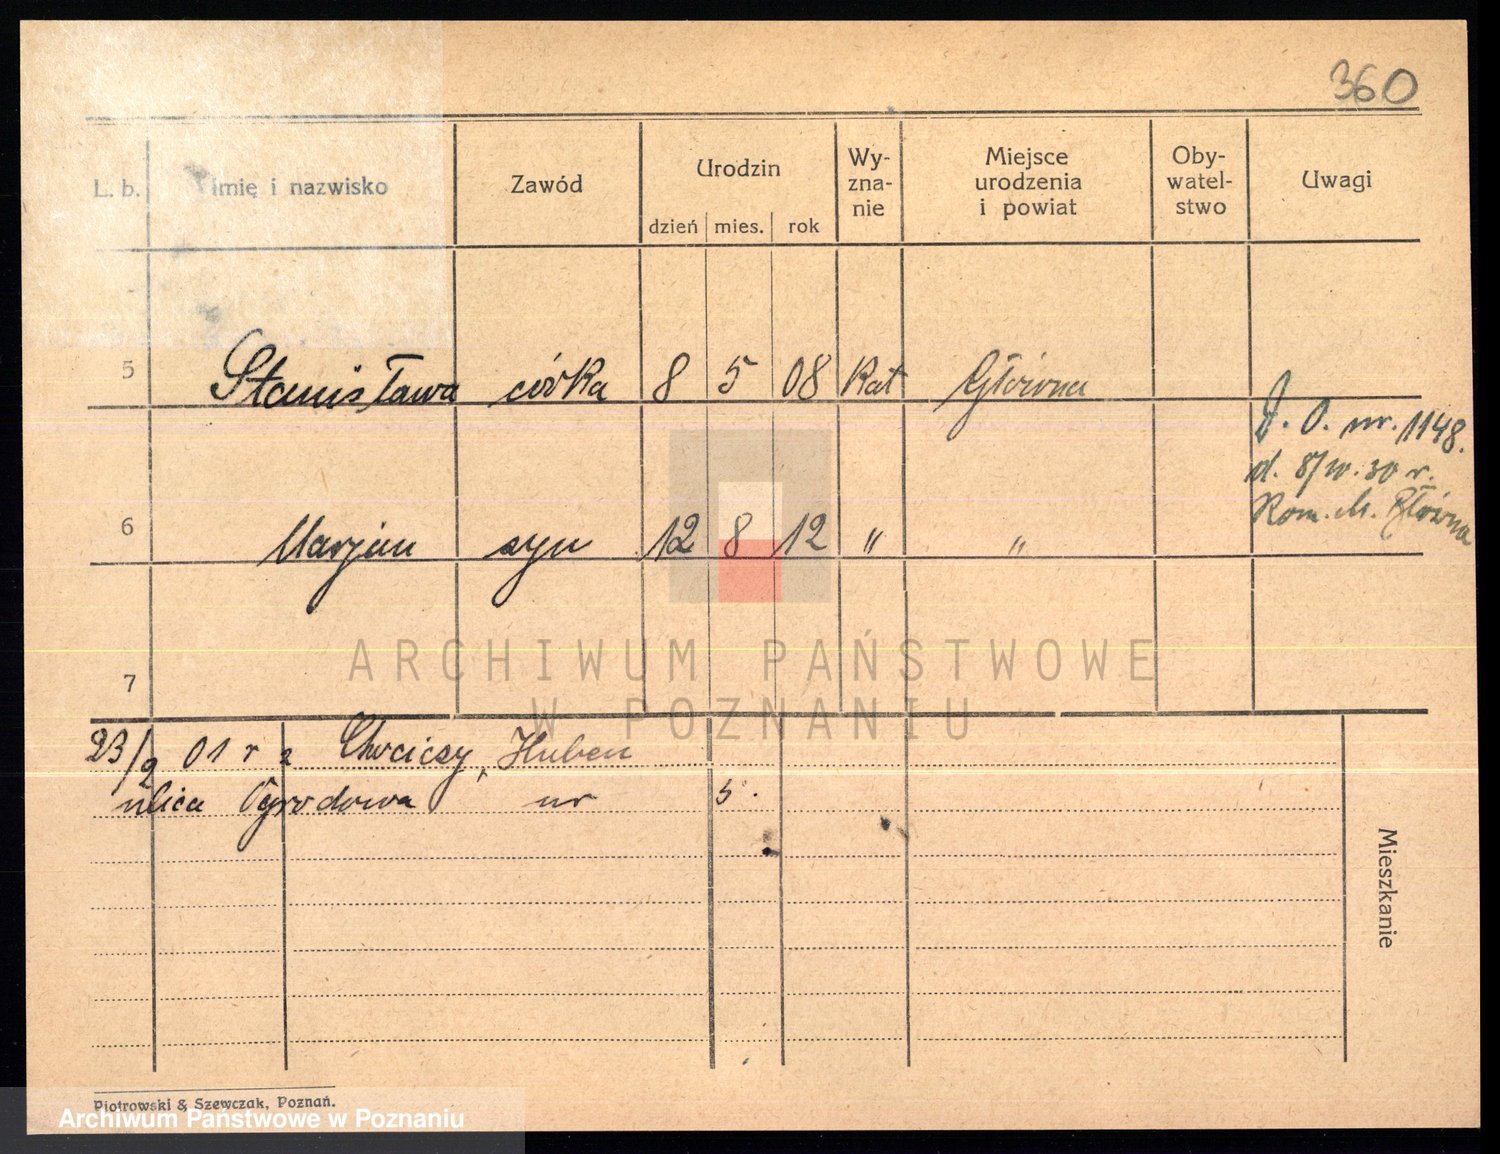 360
L. b. Imię i nazwisko Zawód Urodzin dzień mies. rok Wy-zna-nie Miejsce urodzenia i powiat Oby-watel-stwo Uwagi
5 Stanisława córka 8 5 08 Kat Główna
D. O. nr. 1148.
d. 8/10.30 r.
Kom. M. Główna
6 Marjan syn 12 8 12 " "
7
ARCHIWUM PAŃSTWOWE
W POZNANIU
23/2 01 r z Chwiczy, Huben
ulica Ogrodowa nr 5.
Mieszkanie
Piotrowski & Szewczak, Poznań.
Archiwum Państwowe w Poznaniu